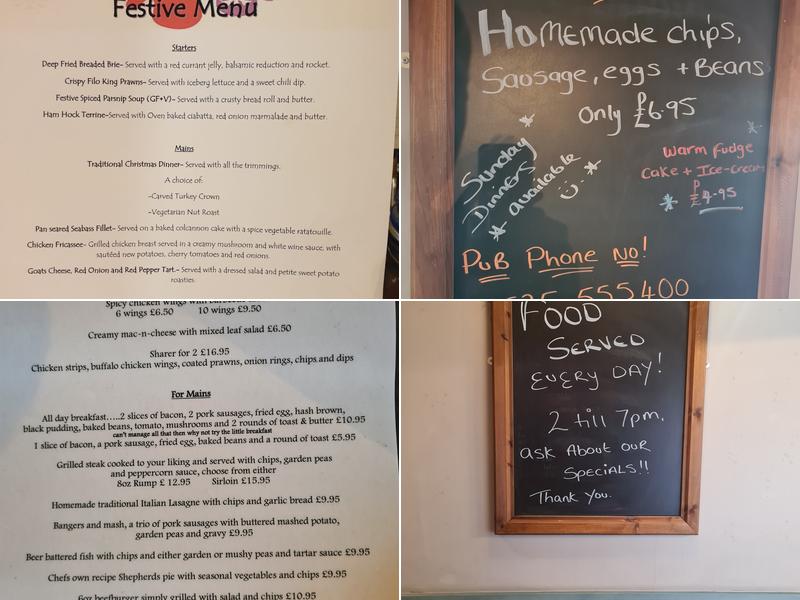 Festive Menu
Starters
Deep Fried Breaded Brie- Served with a red currant jelly, balsamic reduction and rocket.
Crispy Filo King Prawns- Served with iceberg lettuce and a sweet chili dip.
Festive Spiced Parsnip Soup (GF+V)- Served with a crusty bread roll and butter.
Ham Hock Terrine-Served with Oven baked ciabatta, red onion marmalade and butter.
Mains
Traditional Christmas Dinner- Served with all the trimmings.
A choice of:
-Carved Turkey Crown
-Vegetarian Nut Roast
Pan seared Seabass Fillet- Served on a baked colcannon cake with a spice vegetable ratatouille.
Chicken Fricassee- Grilled chicken breast served in a creamy mushroom and white wine sauce, with
sautéed new potatoes, cherry tomatoes and red onions.
Goats Cheese, Red Onion and Red Pepper Tart.- Served with a dressed salad and petite sweet potato
roasties.
Homemade chips,
Sausage, eggs + Beans
Only £6.95
Sunday
Dinners
available
Warm Fudge
Cake + Ice-cream
£4.95
PUB Phone No!
555400
Spicy chicken wings with
6 wings £6.50 10 wings £9.50
Creamy mac-n-cheese with mixed leaf salad £6.50
Sharer for 2 £16.95
Chicken strips, buffalo chicken wings, coated prawns, onion rings, chips and dips
For Mains
All day breakfast.....2 slices of bacon, 2 pork sausages, fried egg, hash brown,
black pudding, baked beans, tomato, mushrooms and 2 rounds of toast & butter £10.95
can't manage all that then why not try the little breakfast
1 slice of bacon, a pork sausage, fried egg, baked beans and a round of toast £5.95
Grilled steak cooked to your liking and served with chips, garden peas
and peppercorn sauce, choose from either
8oz Rump £ 12.95 Sirloin £15.95
Homemade traditional Italian Lasagne with chips and garlic bread £9.95
Bangers and mash, a trio of pork sausages with buttered mashed potato,
garden peas and gravy £9.95
Beer battered fish with chips and either garden or mushy peas and tartar sauce £9.95
Chefs own recipe Shepherds pie with seasonal vegetables and chips £9.95
6oz beefburger simply grilled with salad and chips £10.95
FOOD
SERVED
EVERY DAY!
2 till 7pm.
ask About our
SPECIALS!!
Thank You.